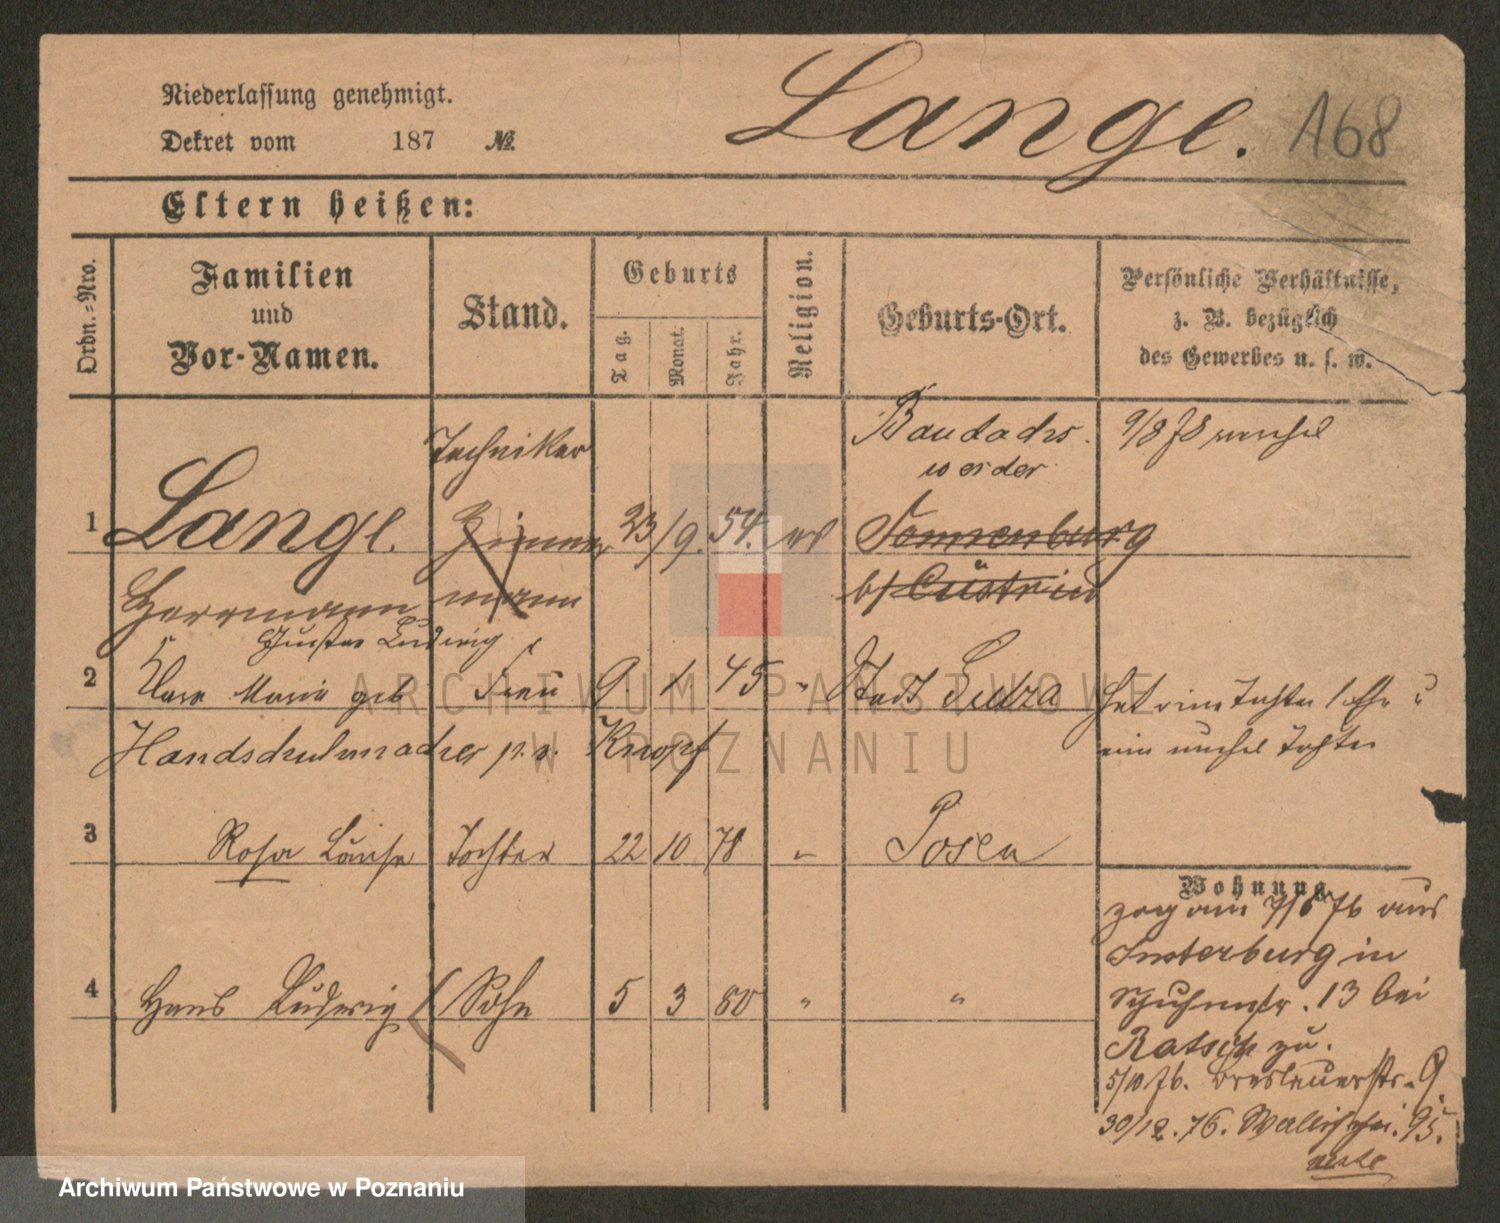 Niederlassung genehmigt.
Dekret vom 187 №
Lange. 168
Eltern heißen:
Ordn.-Nro.
Familien
und
Vor-Namen.
Stand.
Geburts
Tag. Monat. Jahr.
Religion.
Geburts-Ort.
Persönliche Verhältnisse,
z. B. bezüglich
des Gewerbes u. s. w.
Techniker
Baudachs
werder
9/8 78
1 Lange. Zimmer 23/9. 54. ev Sonnenburg
Herrmann mann b/ Cüstrin
Gustav Ludwig
2 Clara Marie geb Frau 9 1 45 " Stadt Sulza
Hat eine Tochter 1 Ehe u
Handschuhmacher p.v. Knopf
eine unehel Tochter
3 Rosa Louise Tochter 22 10 78 " Posen
Wohnung
zog am 7/6 76 aus
Insterburg in
4 Hans Ludwig Sohn 5 3 80 " "
Schuhmstr. 13 bei
Ratsch zu.
5/10.76. Breslauerstr. 9.
30/12.76. Wallischei. 95.
ARCHIWUM PAŃSTWOWE
W POZNANIU
Archiwum Państwowe w Poznaniu